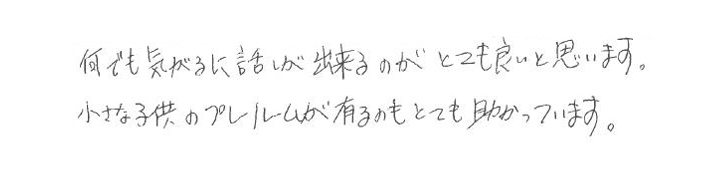 何でも気がるに話しが出来るのがとても良いと思います。
小さな子供のプレルームが有るのもとても助かっています。